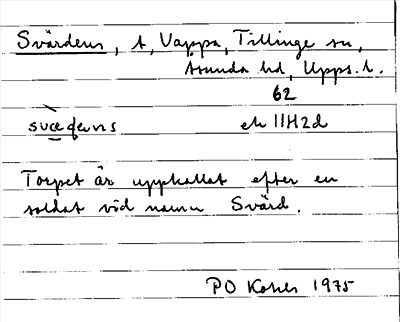 Svärdens, t, Vappa, Tillinge sn,
Åsunda hd, Upps. l.
62
svæ̀ḍens ek 11H2d
Torpet är uppkallat efter en
soldat vid namn Svärd.
PO 1975